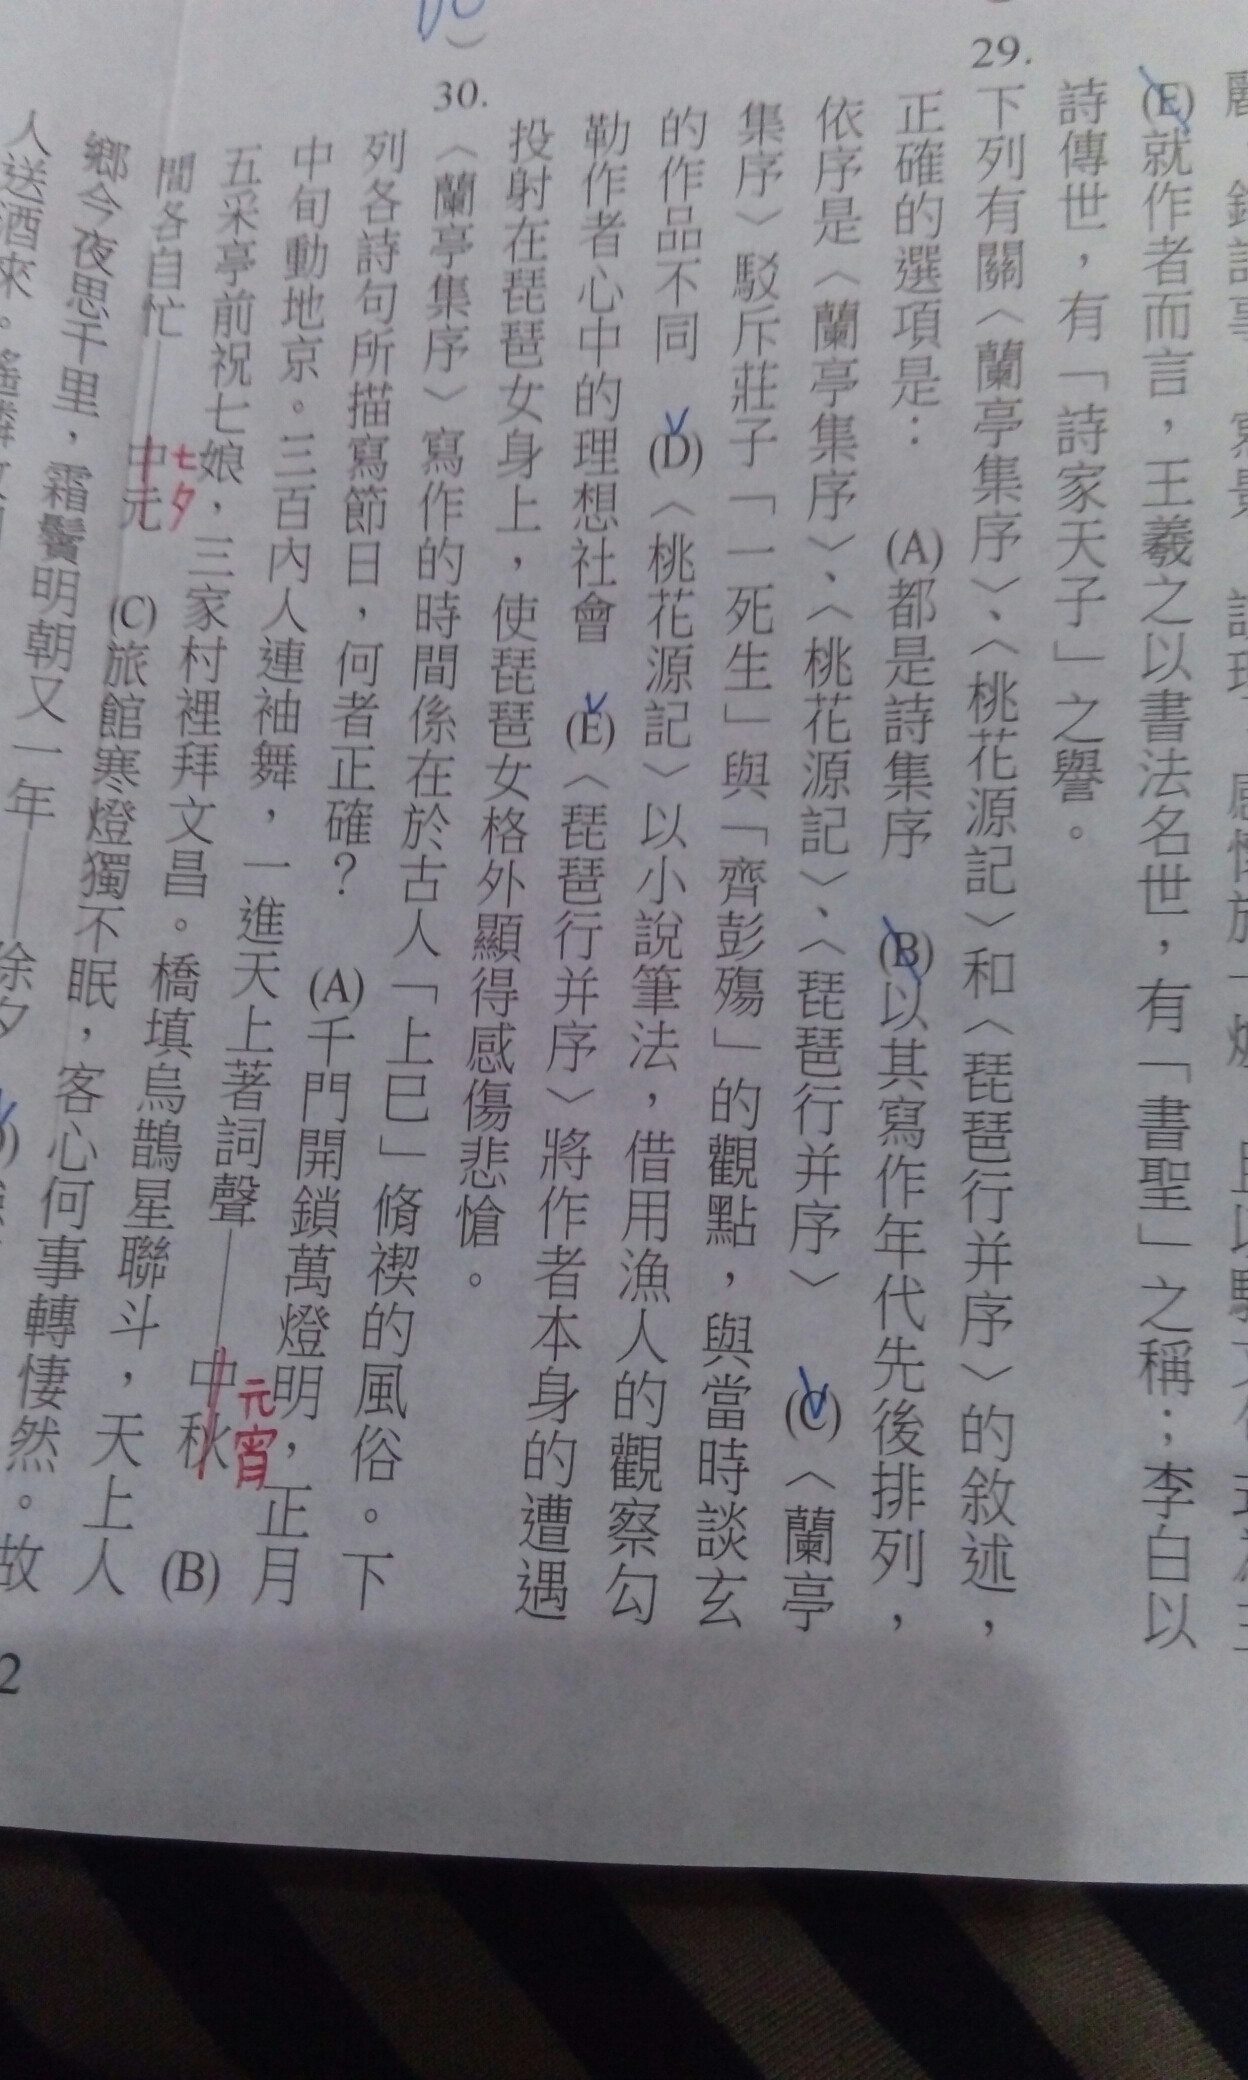 (E)就作者而言，王羲之以書法名世，有「書聖」之稱；李白以
詩傳世，有「詩家天子」之譽。
29.下列有關〈蘭亭集序〉、〈桃花源記〉和〈琵琶行并序〉的敘述，
正確的選項是： (A)都是詩集序 (B)以其寫作年代先後排列，
依序是〈蘭亭集序〉、〈桃花源記〉、〈琵琶行并序〉 (C)〈蘭亭
集序〉駁斥莊子「一死生」與「齊彭殤」的觀點，與當時談玄
的作品不同 (D)〈桃花源記〉以小說筆法，借用漁人的觀察勾
勒作者心中的理想社會 (E)〈琵琶行并序〉將作者本身的遭遇
投射在琵琶女身上，使琵琶女格外顯得感傷悲愴。
）30.〈蘭亭集序〉寫作的時間係在於古人「上巳」脩禊的風俗。下
列各詩句所描寫節日，何者正確？ (A)千門開鎖萬燈明，正月
中旬動地京。三百內人連袖舞，一進天上著詞聲——中秋 (B)
元宵
五采亭前祝七娘，三家村裡拜文昌。橋填烏鵲星聯斗，天上人
間各自忙——中元 (C)旅館寒燈獨不眠，客心何事轉悽然。故
七夕
鄉今夜思千里，霜鬢明朝又一年——除夕
人送酒來。
2